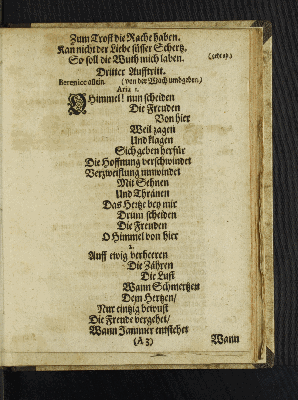 Zum Trost die Rache haben.
Kan nicht der Liebe süsser Schertz,
So soll die Wuth mich laben. (geht ab.)
Dritter Aufftritt.
Berenice allein. (von der Wach umbgeben)
Aria 1.
O Himmel! nun scheiden
Die Freuden
Von hier
Weil zagen
Und klagen
Sich geben herfür
Die Hoffnung verschwindet
Verzweiflung umwindet
Mit Sehnen
Und Thränen
Das Hertze bey mir
Drum scheiden
Die Freuden
O Himmel von hier
2.
Auff ewig verheeren
Die Zähren
Die Lust
Wann Schmertzen
Dem Hertzen/
Nur eintzig bewust
Die Freude vergehet/
Wann Jammer entstehet
(A 3) Wann